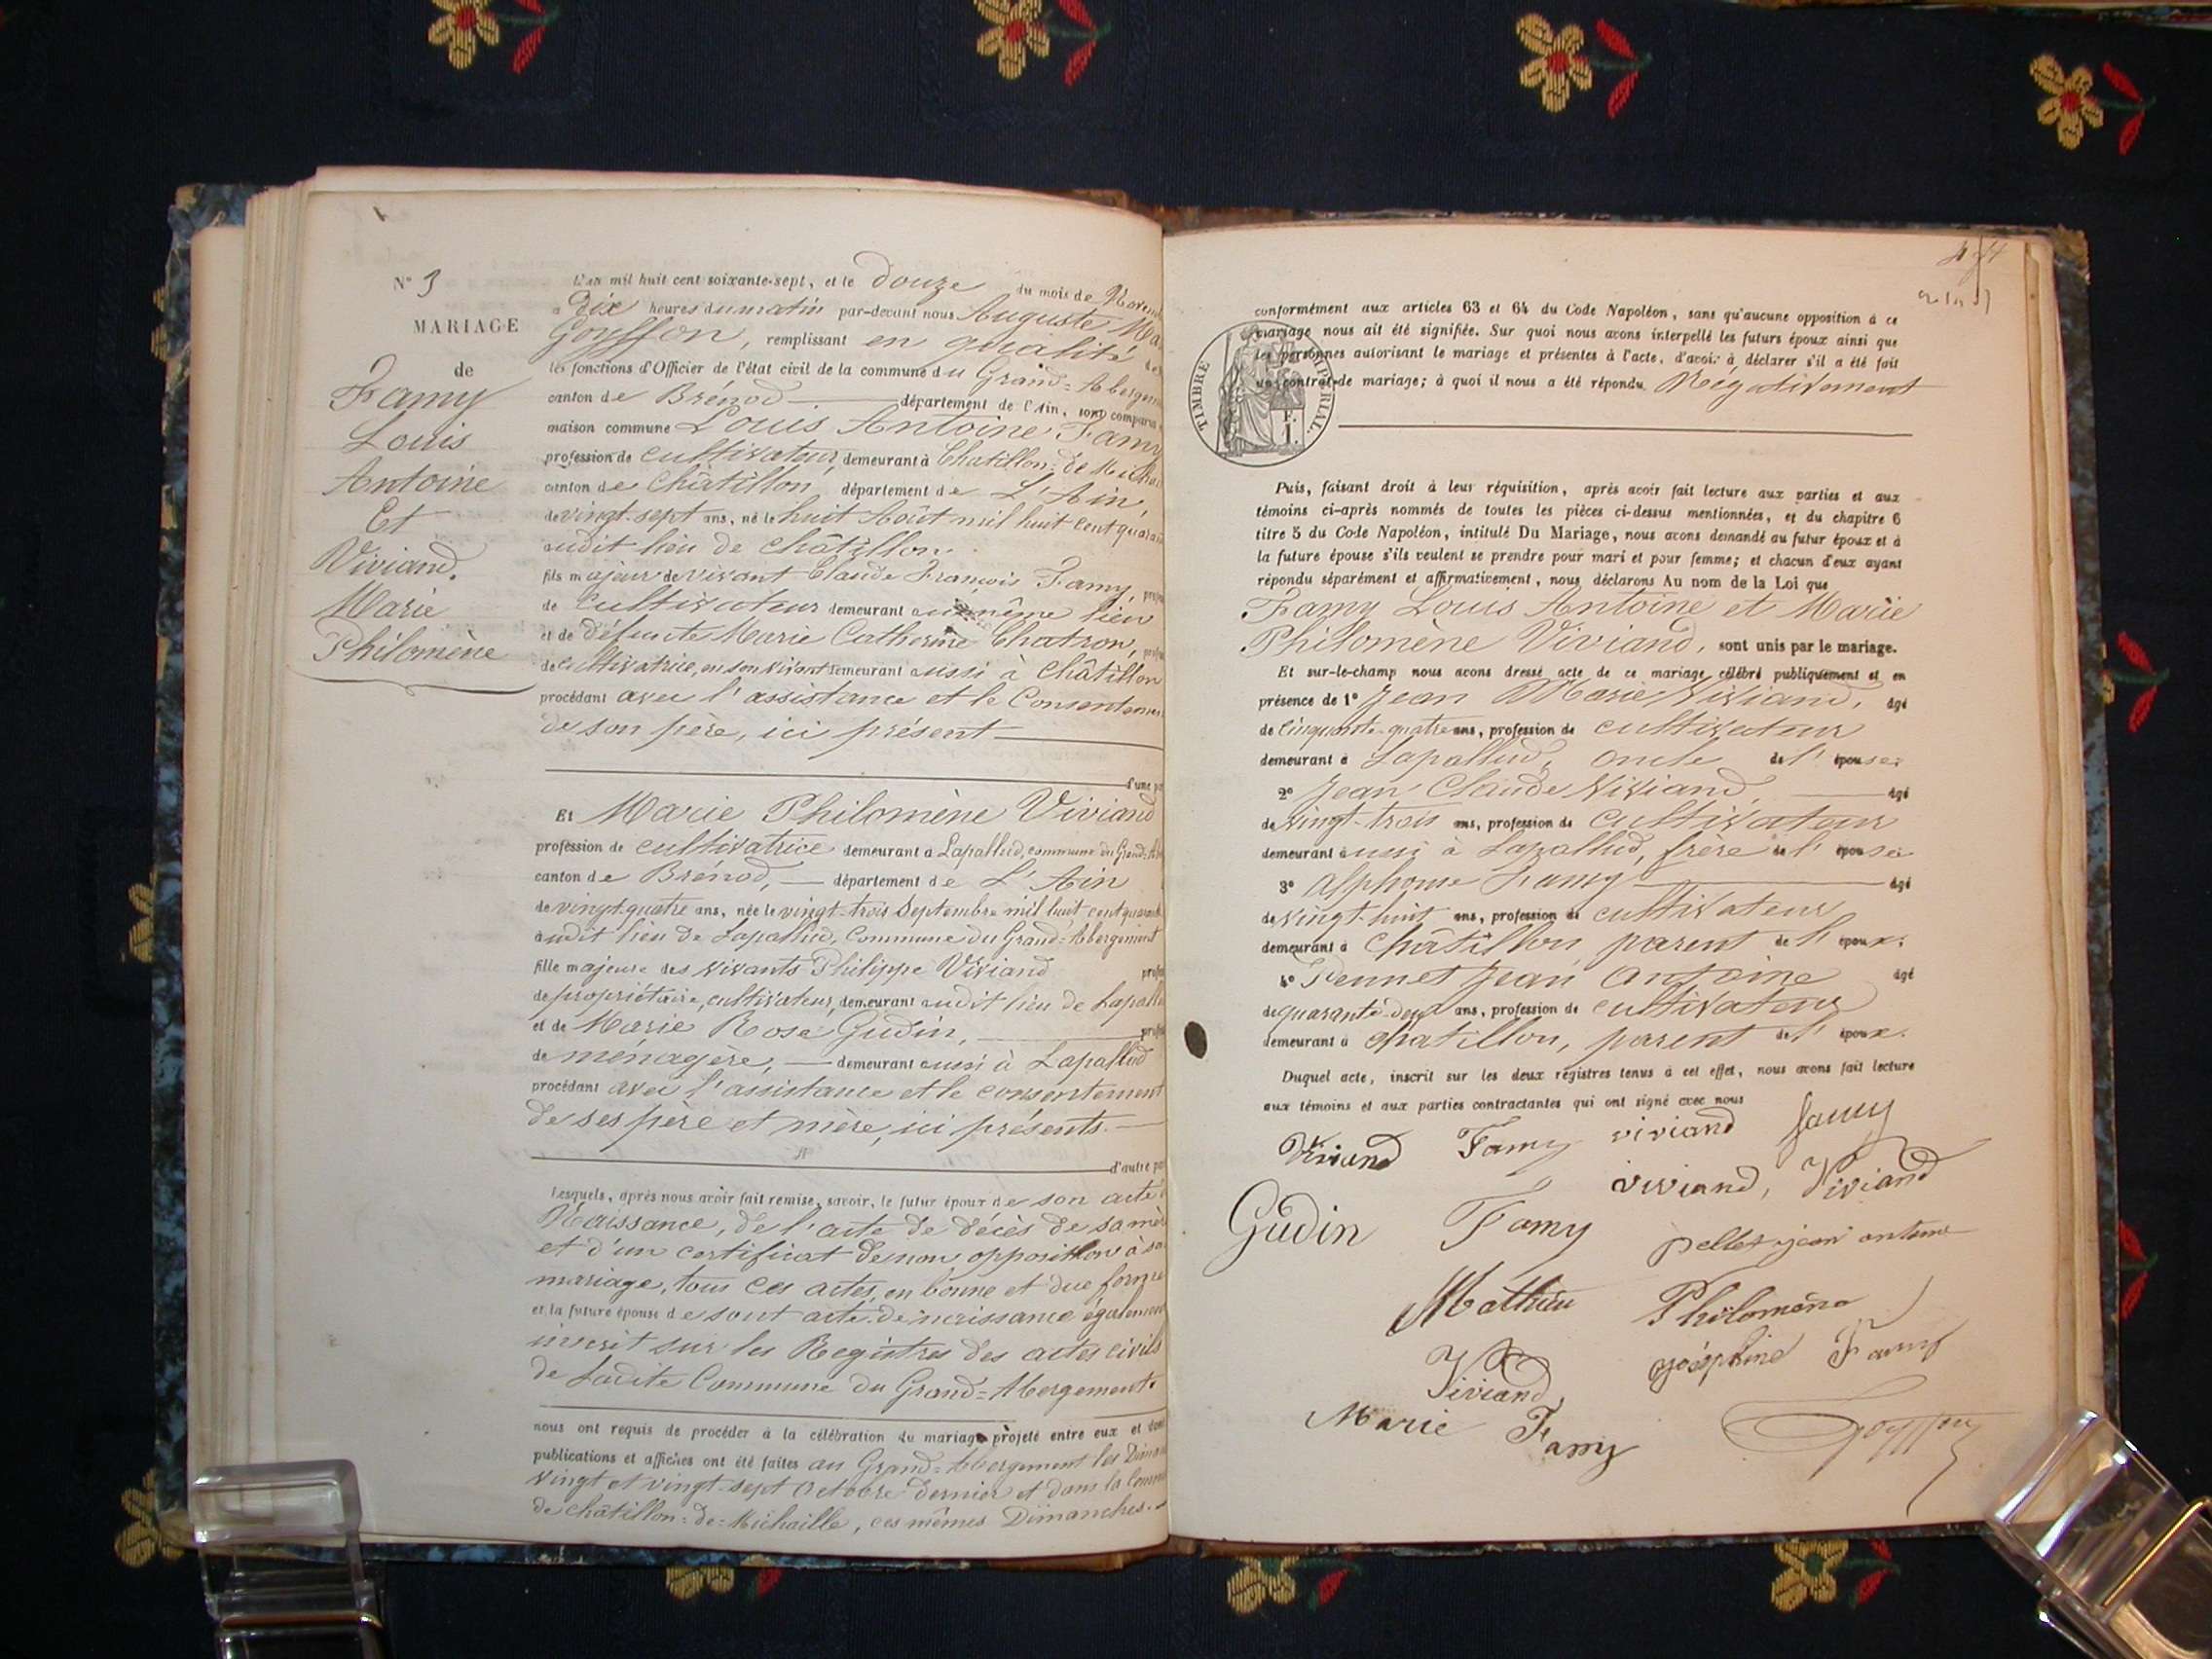 N° 3
MARIAGE
de
Famy
Louis
Antoine
Et
Viviand.
Marie
Philomène
L'an mil huit cent soixante-sept, et le douze du mois de
à dix heures du matin par-devant nous Auguste
Gouffon, remplissant en qualité de
les fonctions d'Officier de l'état civil de la commune du Grand=Abergem
canton de Brénod département de l'Ain, sont comparus
maison commune Louis Antoine Famy
profession de cultivateur, demeurant à Chatillon=de
canton de Châtillon département de L'Ain,
de vingt-sept ans, né le huit Août mil huit cent
audit lieu de Châtillon.
fils majeur de vivant Claude François Famy,
de cultivateur demeurant au même lieu
et de défunte Marie Catherine Chatron,
de cultivatrice, en son vivant demeurant aussi à Châtillon
procédant avec l'assistance et le
de son père, ici présent
d'une
Et Marie Philomène Viviand
profession de cultivatrice demeurant à Lapallud, commune du Grand=
canton de Brénod, département de L'Ain
de vingt-quatre ans, née le vingt-trois Septembre mil huit cent
audit lieu de Lapallud, Commune du Grand=Abergement
fille majeure des vivants Philippe Viviand
de propriétaire, cultivateur, demeurant audit lieu de
et de Marie Rose Gudin,
de ménagère, demeurant aussi à Lapallud
procédant avec l'assistance et le consentement
de ses père et mère, ici présents.
d'autre
Lesquels, après nous avoir fait remise, savoir, le futur époux de son acte
Naissance, de l'acte de décès de sa
et d'un certificat de non opposition à
mariage, tous ces actes, en bonne et due forme
et la future épouse de sont acte de naissance
inscrit sur les Registres des actes civils
de Ladite Commune du Grand=Abergement.
nous ont requis de procéder à la célébration du mariage projeté entre eux et dont
publications et affiches ont été faites au Grand=Abergement les
vingt et vingt-sept Octobre dernier et dans la
de Châtillon=de=Michaille, ces mêmes Dimanches.
TIMBRE IMPÉRIAL.
F.
1.
conformément aux articles 63 et 64 du Code Napoléon, sans qu'aucune opposition à ce
mariage nous ait été signifiée. Sur quoi nous avons interpellé les futurs époux ainsi que
les personnes autorisant le mariage et présentes à l'acte, d'avoir à déclarer s'il a été fait
un contrat de mariage; à quoi il nous a été répondu Négativement
Puis, faisant droit à leur réquisition, après avoir fait lecture aux parties et aux
témoins ci-après nommés de toutes les pièces ci-dessus mentionnées, et du chapitre 6
titre 5 du Code Napoléon, intitulé Du Mariage, nous avons demandé au futur époux et à
la future épouse s'ils veulent se prendre pour mari et pour femme; et chacun d'eux ayant
répondu séparément et affirmativement, nous déclarons Au nom de la Loi que
Famy Louis Antoine et Marie
Philomène Viviand, sont unis par le mariage.
Et sur-le-champ nous avons dressé acte de ce mariage célébré publiquement et en
présence de 1° Jean Marie Viviand, âgé
de cinquante-quatre ans, profession de cultivateur
demeurant à Lapallud, oncle de l'épouse;
2° Jean Claude Viviand, âgé
de vingt-trois ans, profession de cultivateur
demeurant aussi à Lapallud, frère de l'épouse
3° Alphonse Famy âgé
de vingt-huit ans, profession de cultivateur
demeurant à Châtillon, parent de l'époux;
4° Jean Antoine âgé
de quarante-deux ans, profession de cultivateur
demeurant à Chatillon, parent de l'époux.
Duquel acte, inscrit sur les deux régistres tenus à cet effet, nous avons fait lecture
aux témoins et aux parties contractantes qui ont signé avec nous
Viviand Famy viviand famy
viviand, Viviand
Gudin Famy pellet jean antoine
Mathieu Philomène
Viviand Joséphine Famy
Marie Famy Gouffon